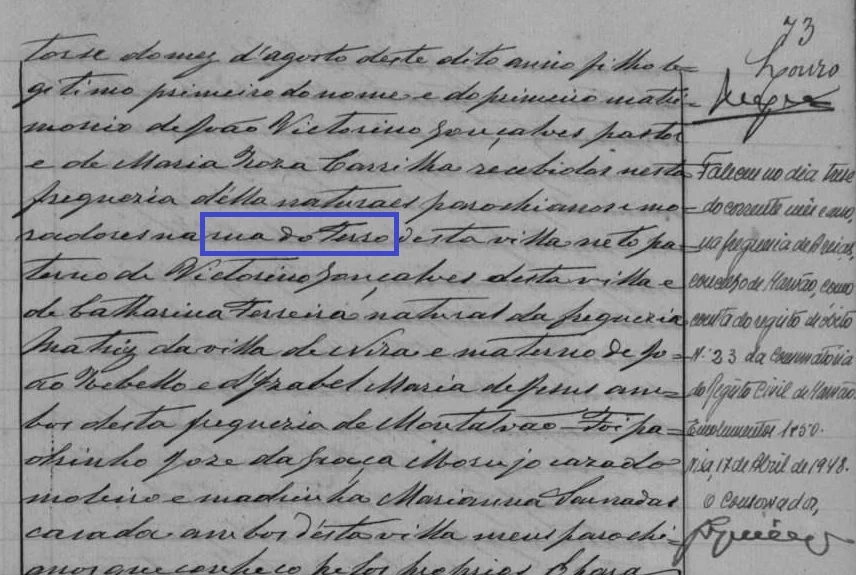 torse do mez d'agosto deste dito anno filho le=
gitimo primeiro do nome e do primeiro matri=
monio de João Victorino Gonçalves pastor
e de Maria Roza Carrilha recebidos nesta
freguezia d'ella naturaes parochianos e mo=
radores na rua do Ferro desta villa neto pa=
terno de Victorino Gonçalves desta villa e
de Catharina Ferreira natural da freguezia
Matriz da villa de Niza e materno de Jo=
ão Rebello e d'Izabel Maria de Jesus am=
bos desta freguezia de Montalvão Foi pa=
drinho Joze da Graça Morujo cazado
moleiro e madrinha Marianna Lourada
casada ambos désta villa meus parochi=
anos que conheço pelos proprios E para
73
Louro
Faleceu no dia treze
do corrente mês e ano,
na freguesia de Areias,
concelho de Marvão, como
consta do registo de óbito
N.º 23 da Conservatória
do Registo Civil de Marvão.
Emolumentos 1$50.
Nisa, 17 de Abril de 1948.
O Conservador,